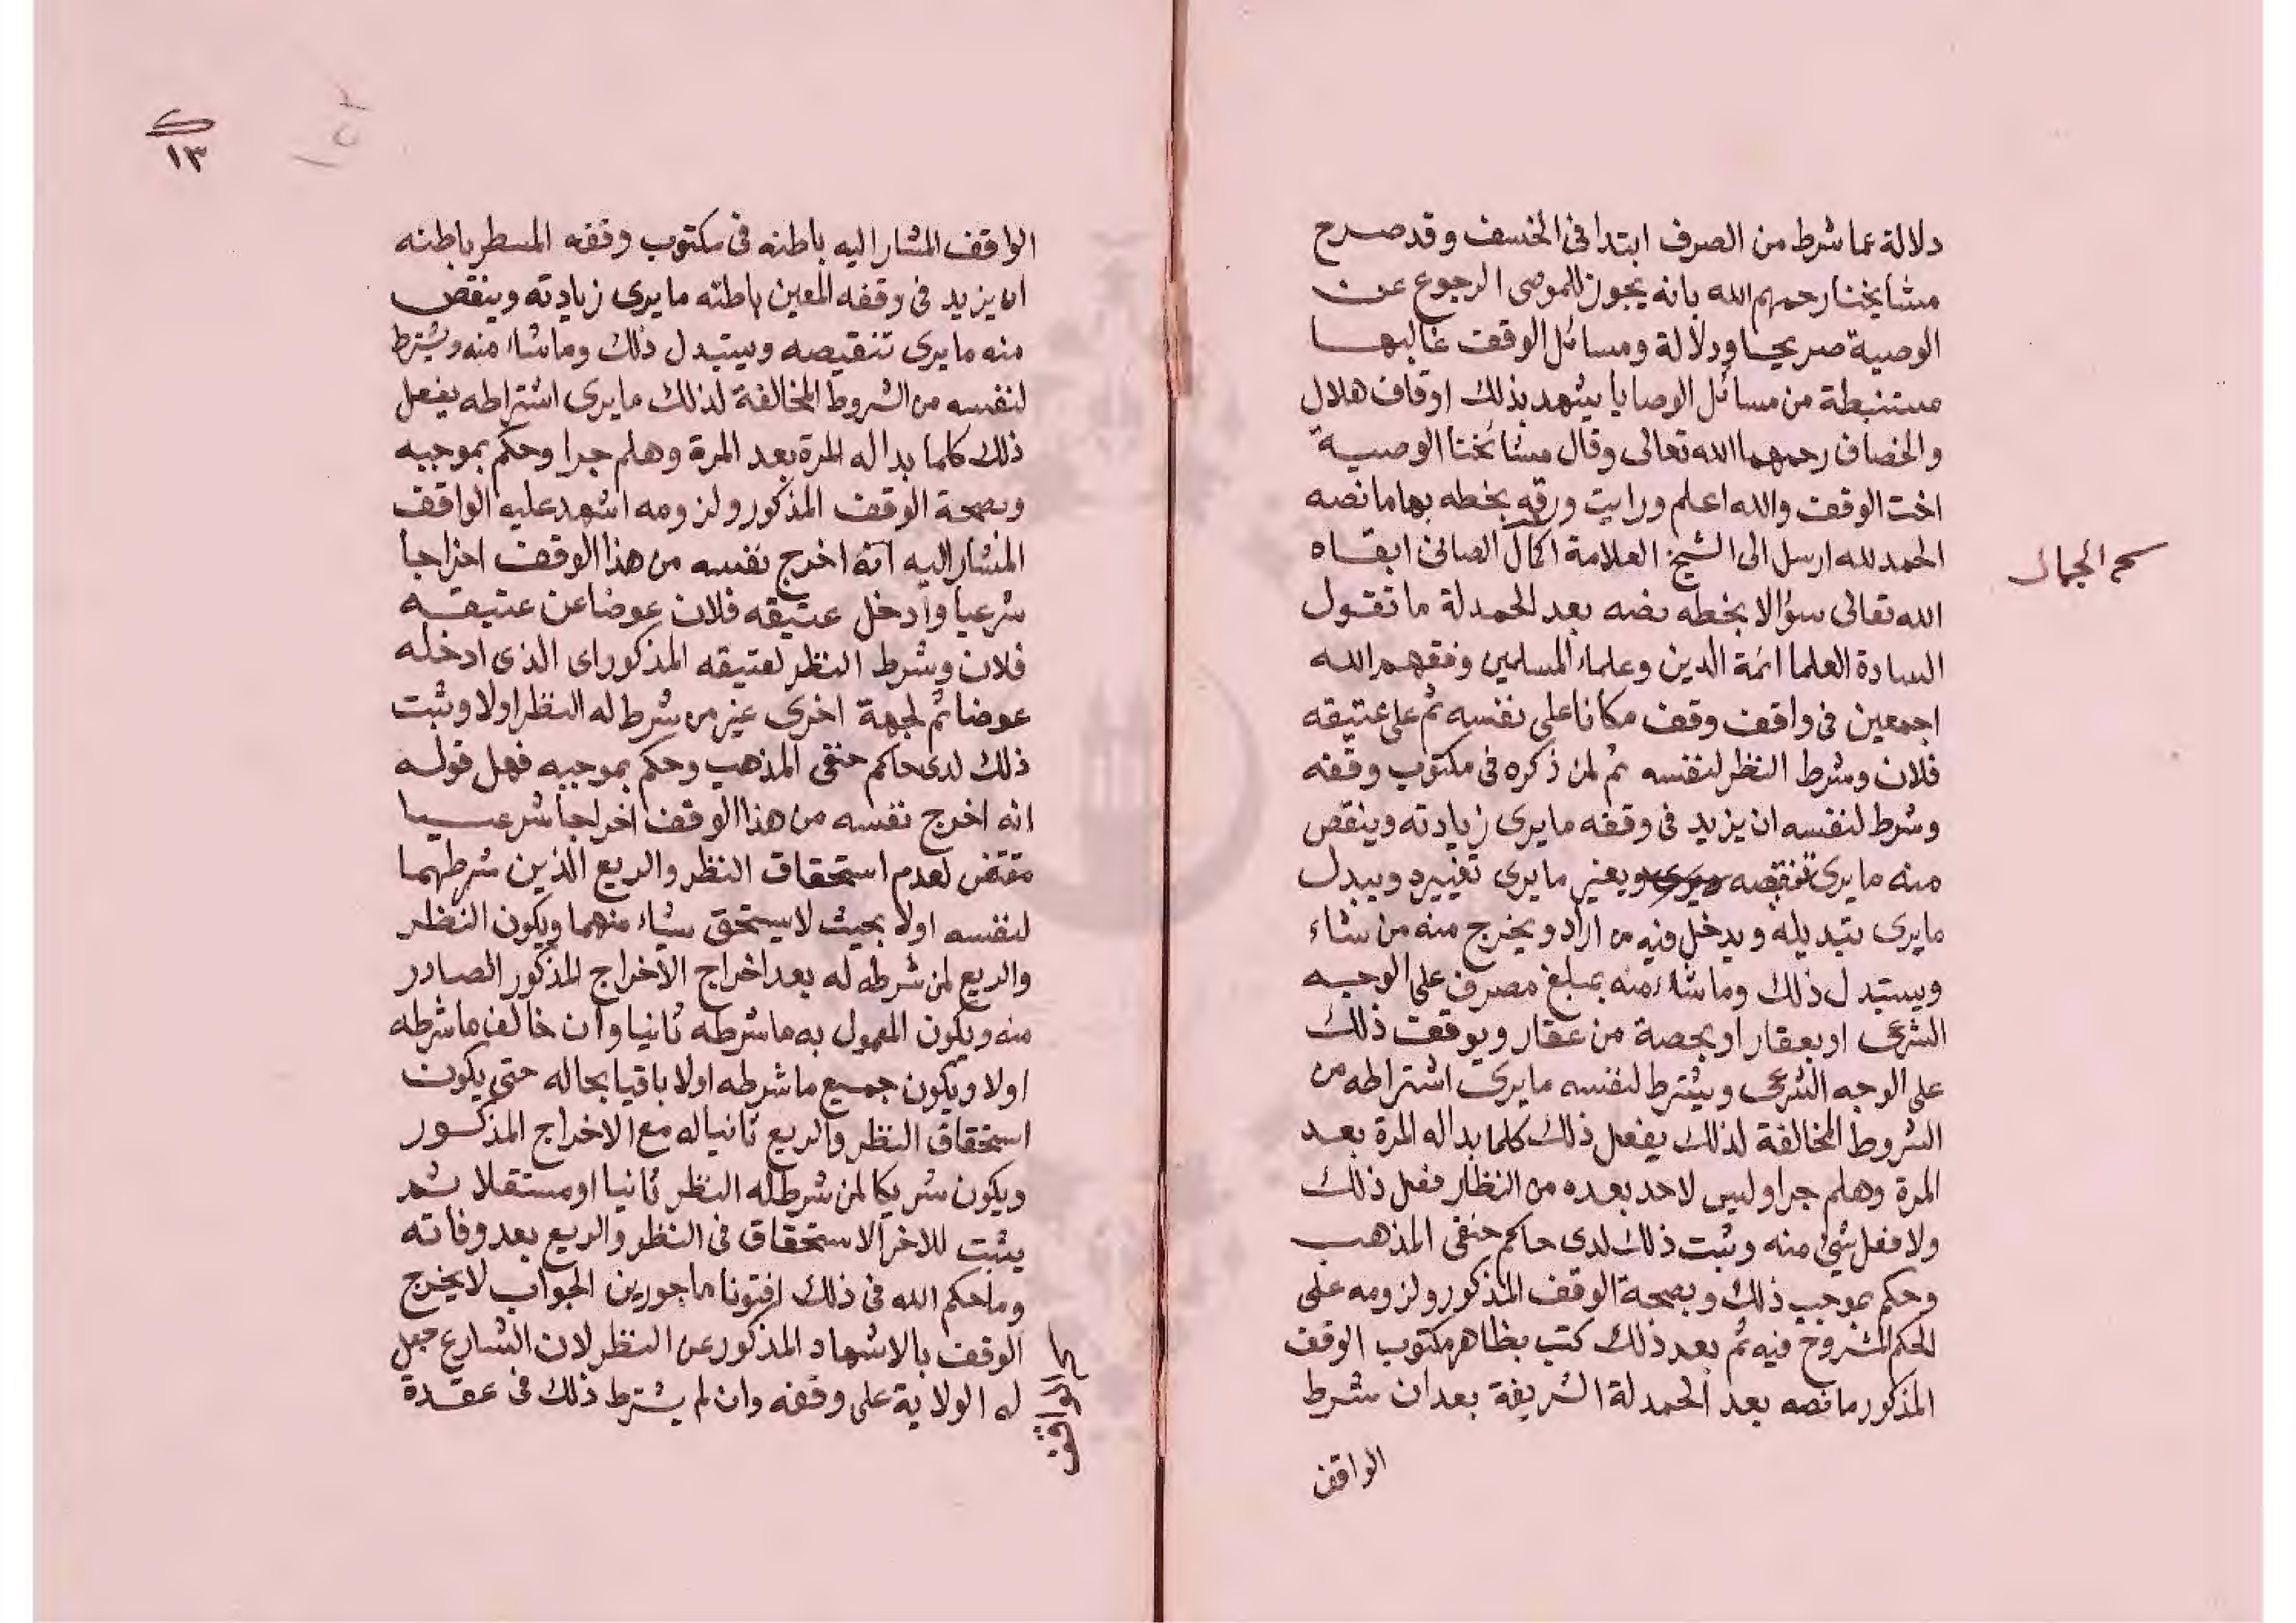 دلالة عما شرط من الصرف ابتدا فى الخسف وقد صرح
مشايخنا رحمهم الله بانه يجوز للموصى الرجوع عن
الوصية صريحا ودلالة ومسائل الوقف غالبها
مستنبطة من مسائل الوصايا يشهد بذلك اوقاف هلال
والخصاف رحمهما الله تعالى وقال مشائخنا الوصية
اخت الوقف والله اعلم ورايت ورقه بخطه بها ما نصه
الحمد لله ارسل الى الشيخ العلامة الصائن ابقاه
الجمال
الله تعالى سؤالا بخطه نصه بعد الحمدلة ما تقول
السادة العلما ائمة الدين وعلماء المسلمين وفقهم الله
اجمعين فى واقف وقف مكانا على نفسه ثم على عتيقه
فلان وشرط النظر لنفسه ثم لمن ذكره فى مكتوب وقفه
وشرط لنفسه ان يزيد فى وقفه ما يرى زيادته وينقص
منه ما يرى تنقيصه ويغير ما يرى تغييره ويبدل
ما يرى تبديله ويدخل فيه من اراد ويخرج منه من شاء
ويستبدل ذلك وما شاء منه بمبلغ مصرف على الوجه
الشرعى او بعقار او بحصة من عقار ويوقف ذلك
على الوجه الشرعى ويشترط لنفسه ما يرى اشتراطه من
الشروط المخالفة لذلك يفعل ذلك كلما بدا له المرة بعد
المرة وهلم جرا وليس لاحد بعده من النظار فعل ذلك
ولا فعل شئ منه وثبت ذلك لدى حاكم حنفى المذهب
وحكم بموجب ذلك وبصحة الوقف المذكور ولزومه على
الحكم المشروح فيه ثم بعد ذلك كتب بظاهر مكتوب الوقف
المذكور ما نصه بعد الحمدلة الشريفة بعد ان شرط
الواقف
١٣
الواقف المشار اليه باطنه فى مكتوب وقفه المسطر باطنه
ان يزيد فى وقفه المعين باطنه ما يرى زيادته وينقص
منه ما يرى تنقيصه ويستبدل ذلك وما شاء منه ويشترط
لنفسه من الشروط المخالفة لذلك ما يرى اشتراطه يفعل
ذلك كلما بدا له المرة بعد المرة وهلم جرا وحكم بموجبه
وبصحة الوقف المذكور ولزومه اشهد عليه الواقف
المشار اليه انه اخرج نفسه من هذا الوقف اخراجا
شرعيا وادخل عتيقه فلان عوضا عن عتيقه
فلان وشرط النظر لعتيقه المذكور اى الذى ادخله
عوضا ثم لجهة اخرى غير من شرط له النظر اولا وثبت
ذلك لدى حاكم حنفى المذهب وحكم بموجبه فهل قوله
انه اخرج نفسه من هذا الوقف اخراجا شرعيا
مقتض لعدم استحقاق النظر والريع الذين شرطهما
لنفسه اولا بحيث لا يستحق شياء منهما ويكون النظر
والريع لمن شرطه له بعد اخراج الاخراج المذكور الصادر
منه ويكون المعمول به ما شرطه ثانيا وان خالف ما شرطه
اولا ويكون جميع ما شرطه اولا باقيا بحاله حتى يكون
استحقاق النظر والريع ثانيا له مع الاخراج المذكور
ويكون شريكا لمن شرط له النظر ثانيا او مستقلا ثم
يثبت للاخر الاستحقاق فى النظر والريع بعد وفاته
وما حكم الله فى ذلك افتونا ماجورين الجواب لا يخرج
الوقف بالاشهاد المذكور عن النظر لان الشارع جعل
له الولاية على وقفه وان لم يشترط ذلك فى عقدة
الواقف